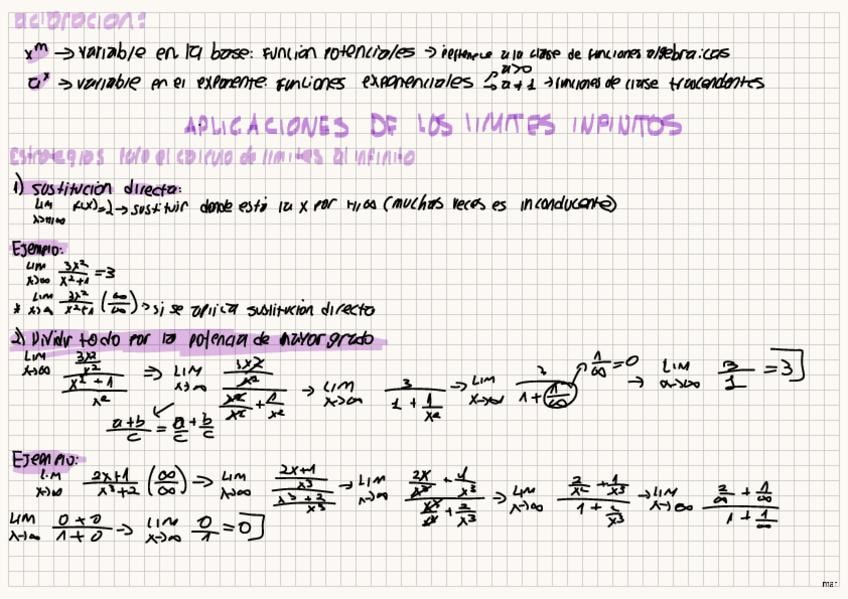 aclaracion:
x^m → variable en la base: función potenciales → pertenece a la clase de funciones algebraicas
a^x → variable en el exponente: funciones exponenciales → a>0 → a≠1 → funciones de clase trascendentes
APLICACIONES DE LOS LIMITES INFINITOS
Estrategias para el calculo de limites al infinito
1) sustitución directa:
LIM x→+1∞ F(x)=2 → sustituir donde está la x por +1∞ (muchas veces es inconducente)
Ejemplo:
LIM x→∞ 3x²/(x²+1) = 3
* LIM x→∞ 3x²/(x²+1) (∞/∞) → si se aplica sustitución directa
2) Dividir todo por la potencia de mayor grado
LIM x→∞ (3x²/x²)/((x²+1)/x²) ⇒ LIM x→∞ (3x²/x²)/(x²/x² + 1/x²) → LIM x→∞ 3/(1 + 1/x²) → LIM x→∞ 3/(1 + 1/∞) 1/∞ = 0 → LIM x→∞ 3/1 = 3
(a+b)/c = a/c + b/c
Ejemplo:
LIM x→∞ (2x+1)/(x³+2) (∞/∞) ⇒ LIM x→∞ ((2x+1)/x³)/((x³+2)/x³) → LIM x→∞ (2x/x³ + 1/x³)/(x³/x³ + 2/x³) → LIM x→∞ (2/x² + 1/x³)/(1 + 2/x³) → LIM x→∞ (2/∞ + 1/∞)/(1 + 1/∞)
LIM x→∞ (0+0)/(1+0) → LIM x→∞ 0/1 = 0
mar